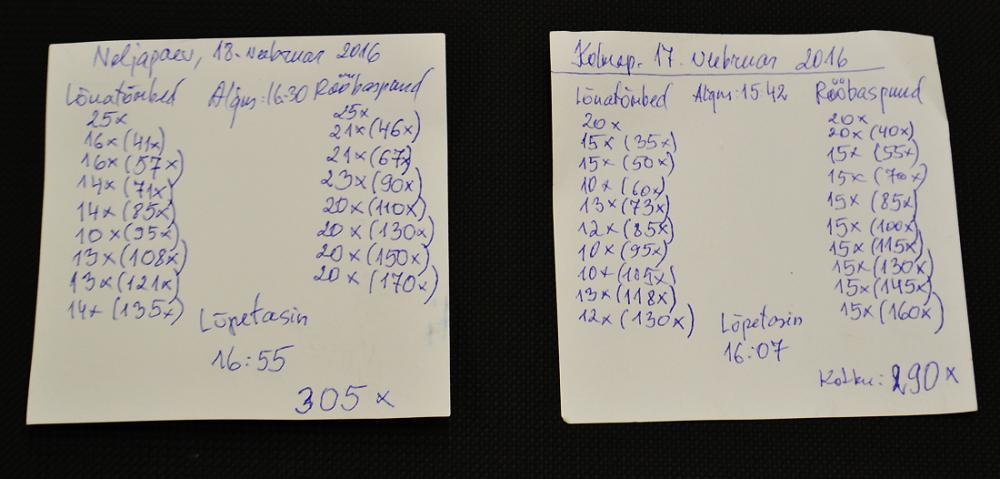 Neljapäev, 18. veebruar 2016
Lõuatõmbed Algus: 16:30 Rööbaspuud
25x 25x
16x (41x) 21x (46x)
16x (57x) 21x (67x)
14x (71x) 23x (90x)
14x (85x) 20x (110x)
10x (95x) 20x (130x)
13x (108x) 20x (150x)
13x (121x) 20x (170x)
14x (135x)
Lõpetasin
16:55
305x
Kolmap. 17. veebruar 2016
Lõuatõmbed Algus: 15:42 Rööbaspuud
20x 20x
15x (35x) 20x (40x)
15x (50x) 15x (55x)
10x (60x) 15x (70x)
13x (73x) 15x (85x)
12x (85x) 15x (100x)
10x (95x) 15x (115x)
10x (105x) 15x (130x)
13x (118x) 15x (145x)
12x (130x) 15x (160x)
Lõpetasin
16:07
Kokku: 290x